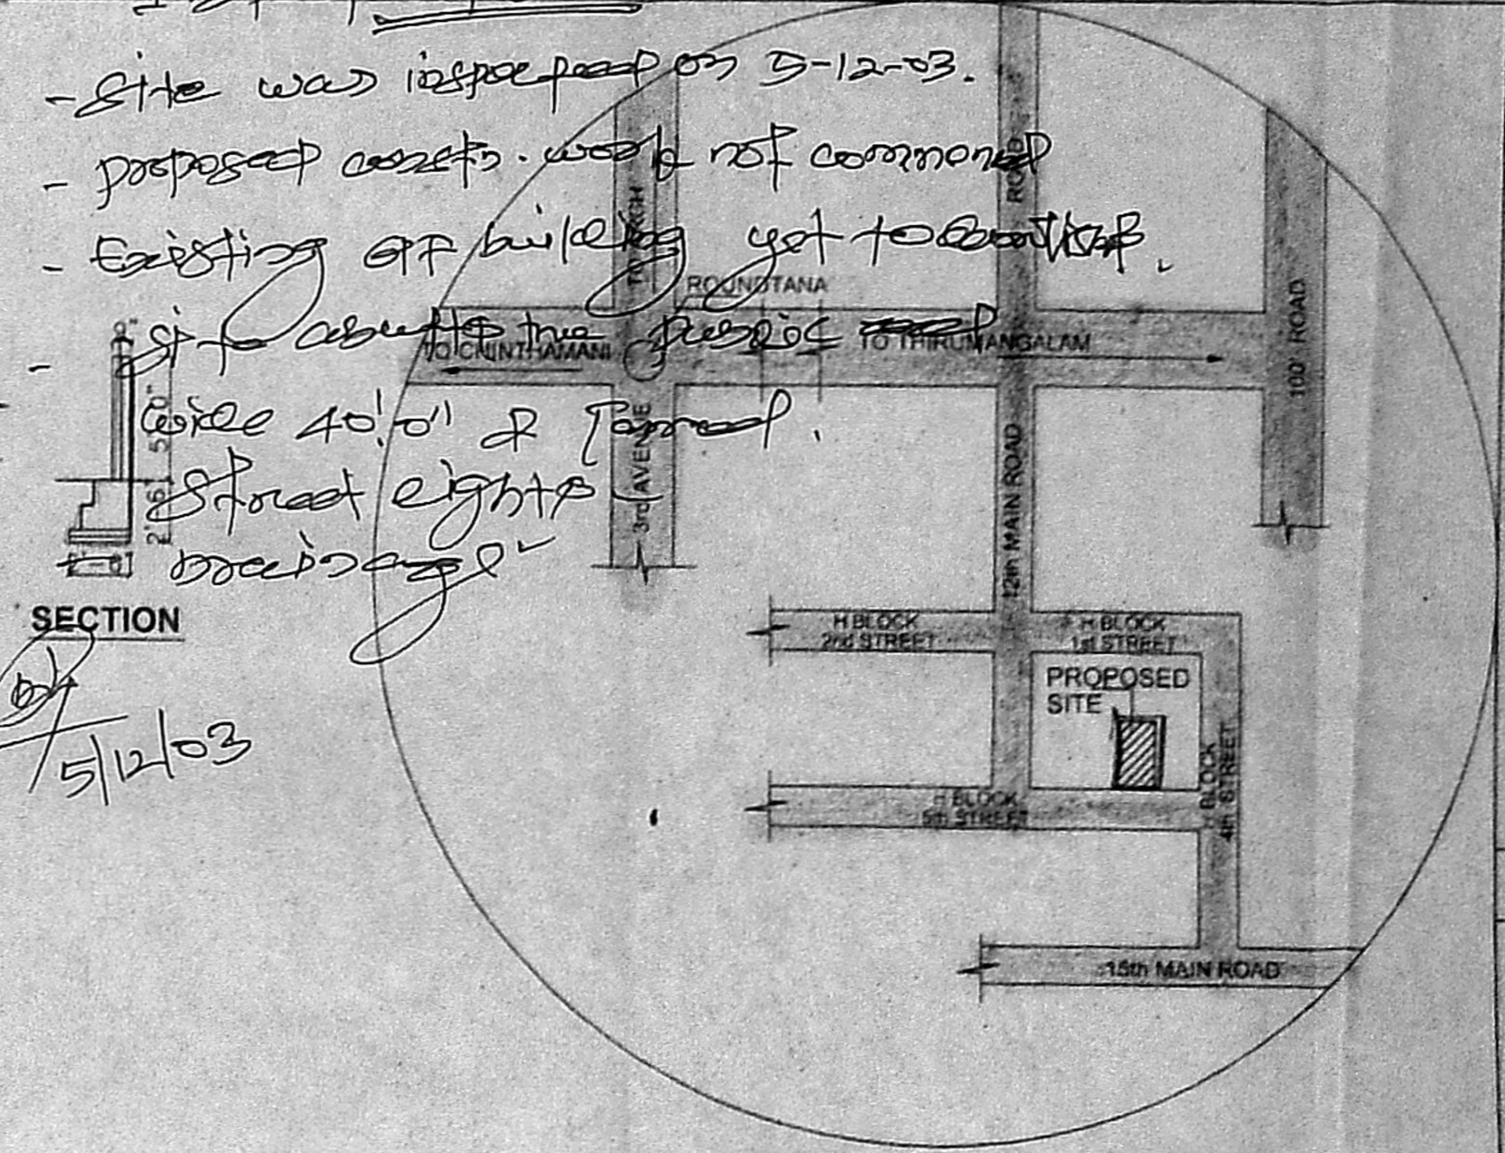 - Site was inspected on 5-12-03.
- proposed constn. work not commenced
- Existing GF building yet to
- site abuts the public road
wide 40'.0" &
Street lights -
- Drainage ✓
5/12/03
5'0"
2'6"
SECTION
ROAD
ROUNDTANA
TO CHINTHAMANI
TO THIRUMANGALAM
100' ROAD
3rd AVENUE
12th MAIN ROAD
H BLOCK
2nd STREET
H BLOCK
1st STREET
PROPOSED
SITE
H BLOCK
4th STREET
H BLOCK
5th STREET
15th MAIN ROAD